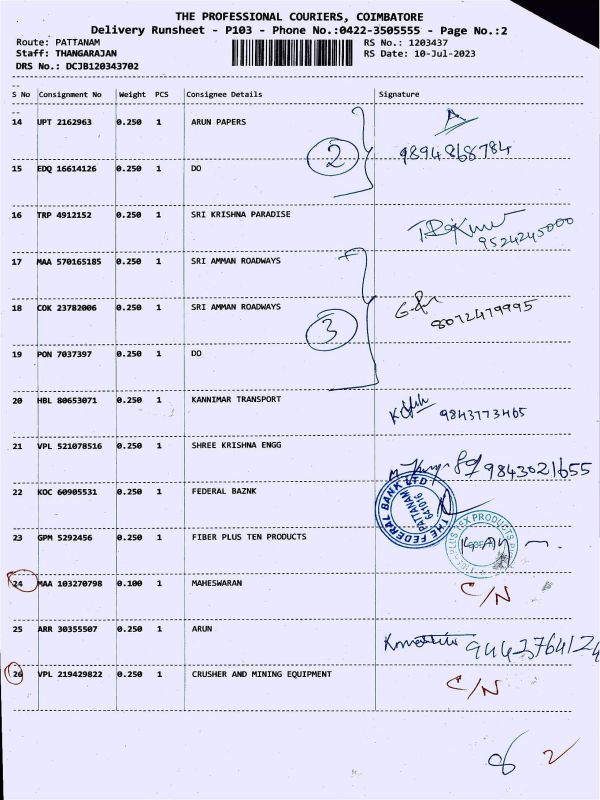 THE PROFESSIONAL COURIERS, COIMBATORE
Delivery Runsheet - P103 - Phone No.:0422-3505555 - Page No.:2
Route: PATTANAM RS No.: 1203437
Staff: THANGARAJAN RS Date: 10-Jul-2023
DRS No.: DCJB120343702
S No Consignment No Weight PCS Consignee Details Signature
14 UPT 2162963 0.250 1 ARUN PAPERS
9894868784
2
15 EDQ 16614126 0.250 1 DO
16 TRP 4912152 0.250 1 SRI KRISHNA PARADISE
9524245000
17 MAA 570165185 0.250 1 SRI AMMAN ROADWAYS
18 COK 23782006 0.250 1 SRI AMMAN ROADWAYS
8072479995
3
19 PON 7037397 0.250 1 DO
20 HBL 80653071 0.250 1 KANNIMAR TRANSPORT
9843773465
21 VPL 521078516 0.250 1 SHREE KRISHNA ENGG
9843021655
22 KOC 60905531 0.250 1 FEDERAL BAZNK
THE FEDERAL BANK LTD
PATTANAM
641016
23 GPM 5292456 0.250 1 FIBER PLUS TEN PRODUCTS
24 MAA 103270798 0.100 1 MAHESWARAN C/N
25 ARR 30355507 0.250 1 ARUN
26 VPL 219429822 0.250 1 CRUSHER AND MINING EQUIPMENT C/N
2